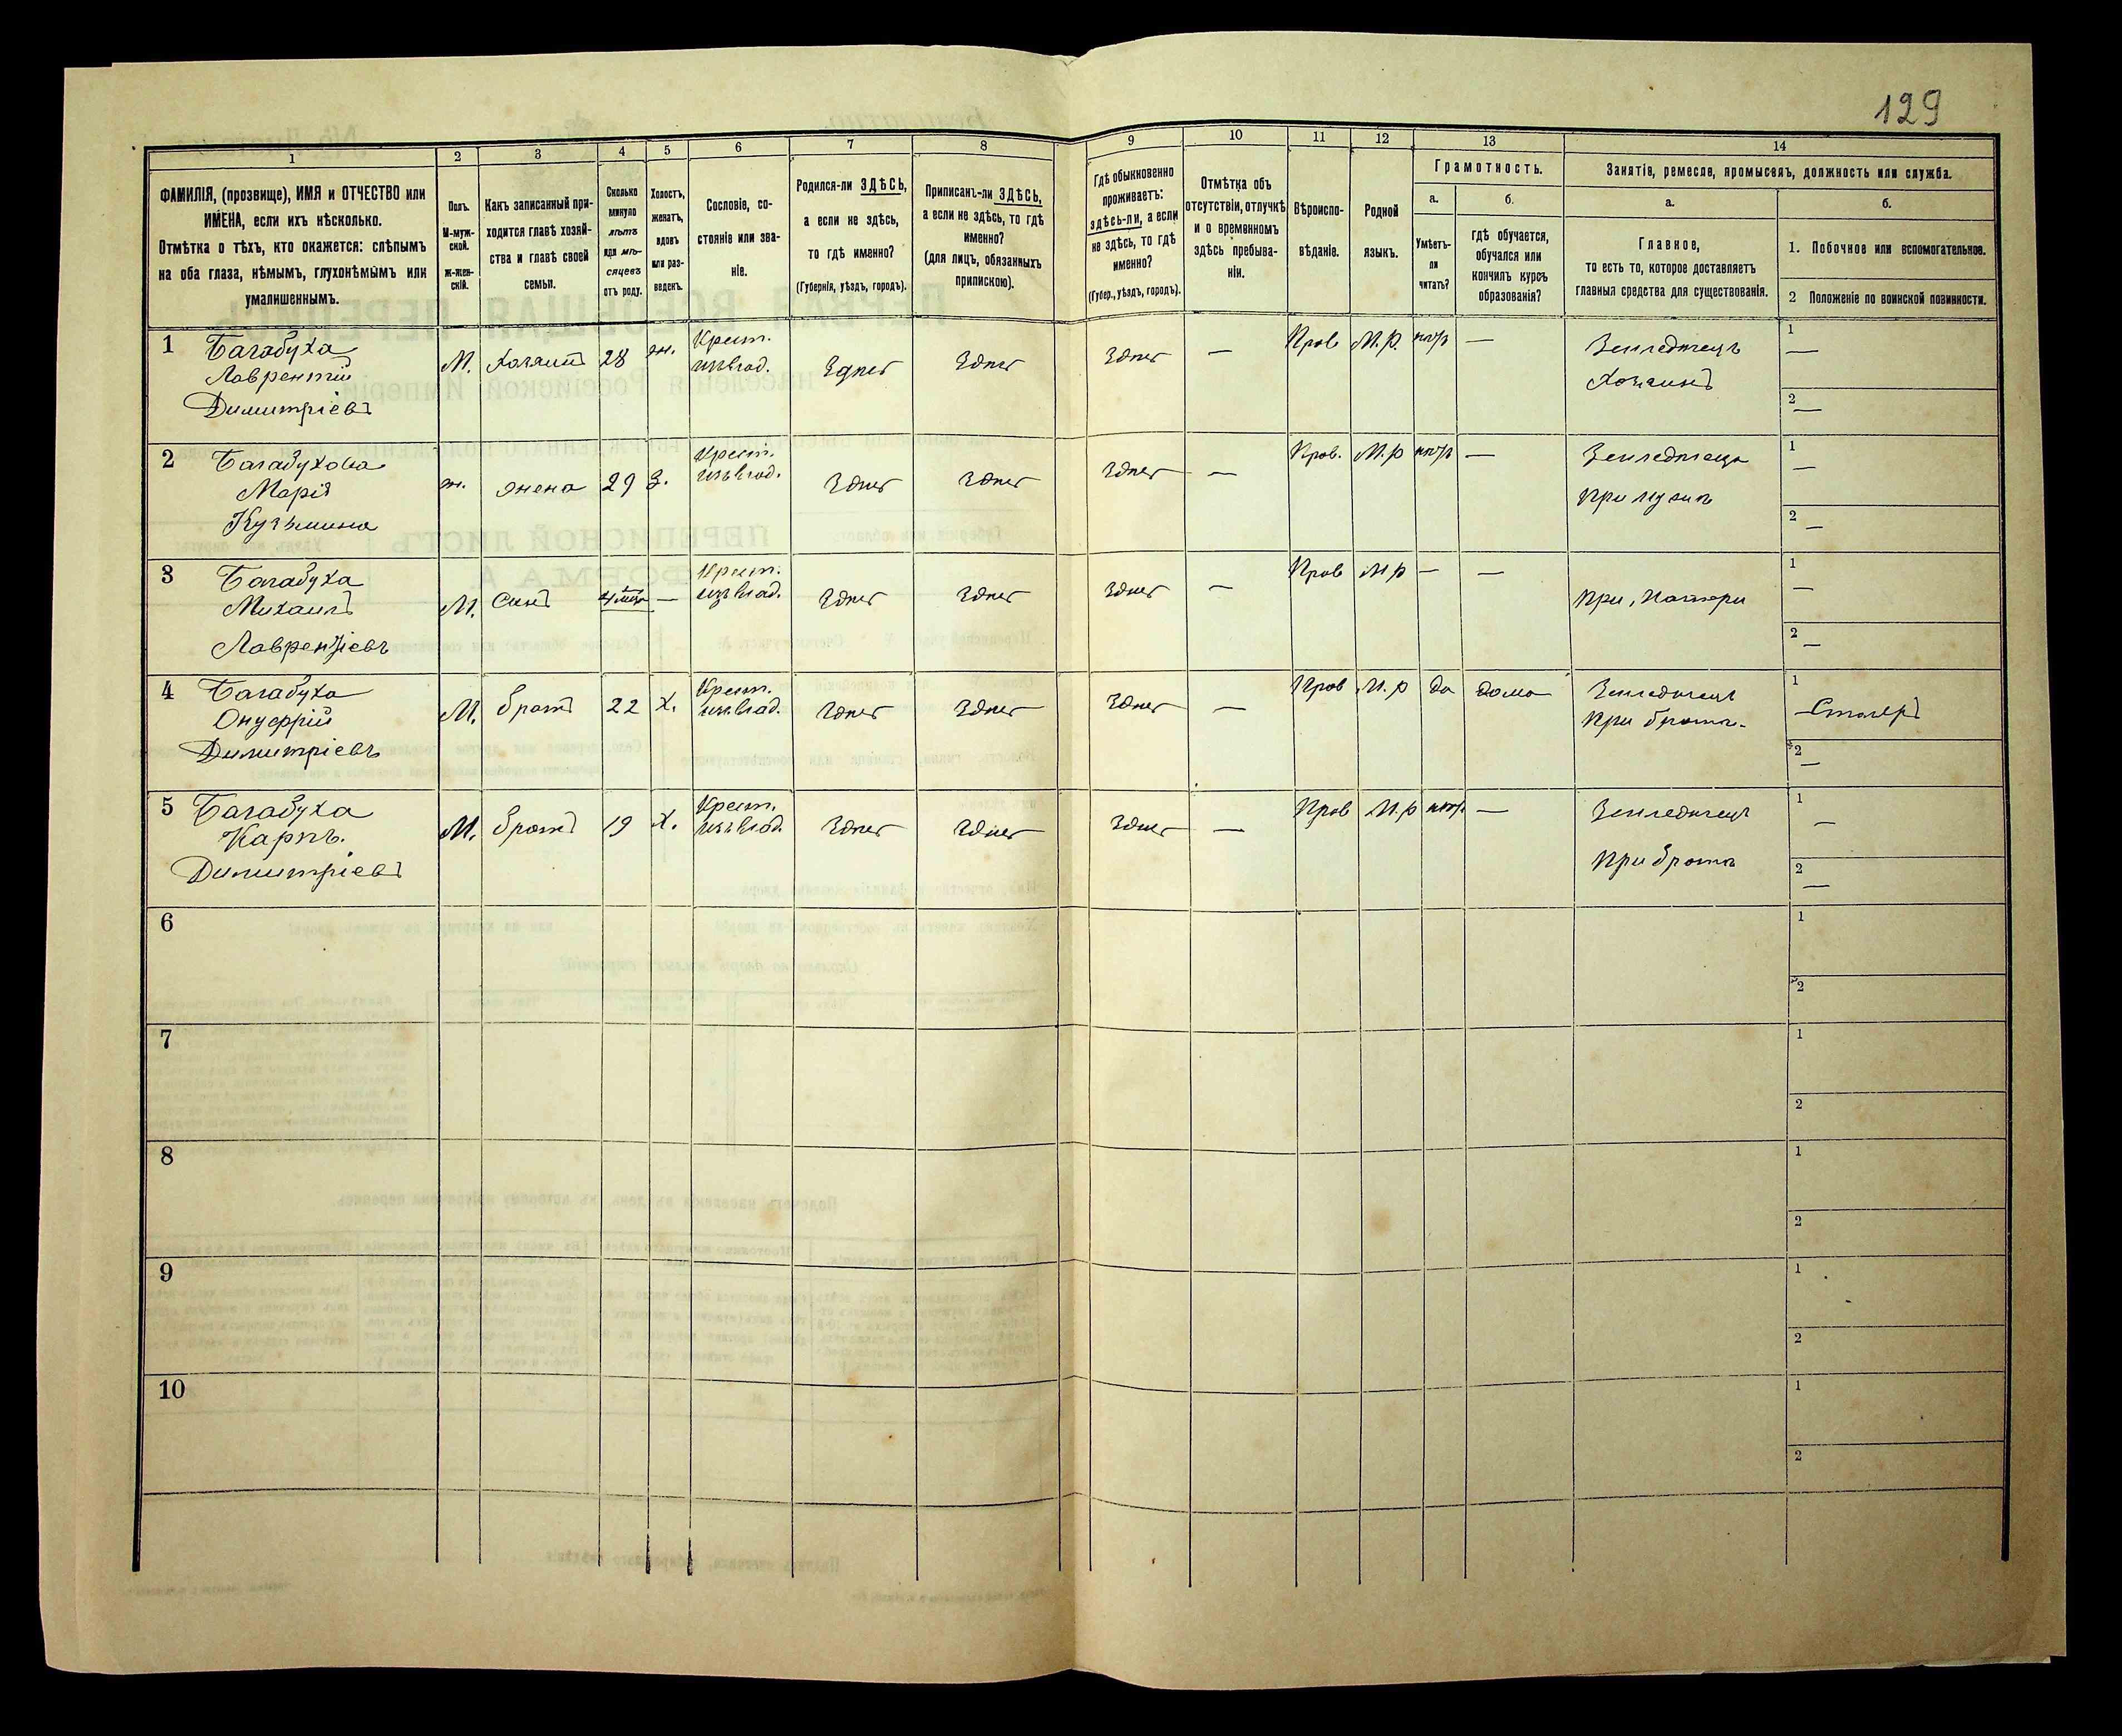 129
1
2
3
4
5
6
7
8
9
10
11
12
13
14
ФАМИЛІЯ, (прозвище), ИМЯ и ОТЧЕСТВО или
ИМЕНА, если ихъ нѣсколько.
Отмѣтка о тѣхъ, кто окажется: слѣпымъ
на оба глаза, нѣмымъ, глухонѣмымъ или
умалишеннымъ.
Полъ.
М-муж-
ской.
ж-жен-
скій.
Какъ записанный при-
ходится главѣ хозяй-
ства и главѣ своей
семьи.
Сколько
минуло
лѣтъ
или мѣ-
сяцевъ
отъ роду.
Холостъ,
женатъ,
вдовъ
или раз-
веденъ.
Сословіе, со-
стояніе или зва-
ніе.
Родился-ли ЗДѢСЬ,
а если не здѣсь,
то гдѣ именно?
(Губернія, уѣздъ, городъ).
Приписанъ-ли ЗДѢСЬ,
а если не здѣсь, то гдѣ
именно?
(для лицъ, обязанныхъ
припискою).
Гдѣ обыкновенно
проживаетъ:
здѣсь-ли, а если
не здѣсь, то гдѣ
именно?
(Губер., уѣздъ, городъ).
Отмѣтка объ
отсутствіи, отлучкѣ
и о временномъ
здѣсь пребыва-
ніи.
Вѣроиспо-
вѣданіе.
Родной
языкъ.
Грамотность.
а.
б.
Умѣетъ-
ли
читать?
гдѣ обучается,
обучался или
кончилъ курсъ
образованія?
Занятіе, ремесло, промыселъ, должность или служба.
а.
б.
Главное,
то есть то, которое доставляетъ
главныя средства для существованія.
1. Побочное или вспомогательное.
2 Положеніе по воинской повинности.
1 Багабуха
Лаврентій
Димитріевъ
М. Хазяинъ 28 ж. Крест.
изъ влад. Здѣсь Здѣсь Здѣсь — Прав М.р. нѣтъ — Земледѣлецъ
Хозяинъ
1 —
2 —
2 Багабухова
Марія
Кузьмина
ж. жена 29 З. Крест.
изъ влад. Здѣсь Здѣсь Здѣсь — Прав. М.р нѣтъ — Земледѣлецъ
при мужѣ
1 —
2 —
3 Багабуха
Михаилъ
Лаврентіевъ
М. Синъ — Крест.
изъ влад. Здѣсь Здѣсь Здѣсь — Прав М р — — при матери
1 —
2 —
4 Багабуха
Онуфрій
Димитріевъ
М. братъ 22 х. Крест.
изъ влад. Здѣсь Здѣсь Здѣсь — Прав М.р да дома Земледѣлецъ
при братѣ.
1 Столяръ
2 —
5 Багабуха
Карпъ.
Димитріевъ
М. братъ 19 х. Крест.
изъ влад. Здѣсь Здѣсь Здѣсь — Прав М.р нѣтъ — Земледѣлецъ
при братѣ
1 —
2 —
6
1
2
7
1
2
8
1
2
9
1
2
10
1
2